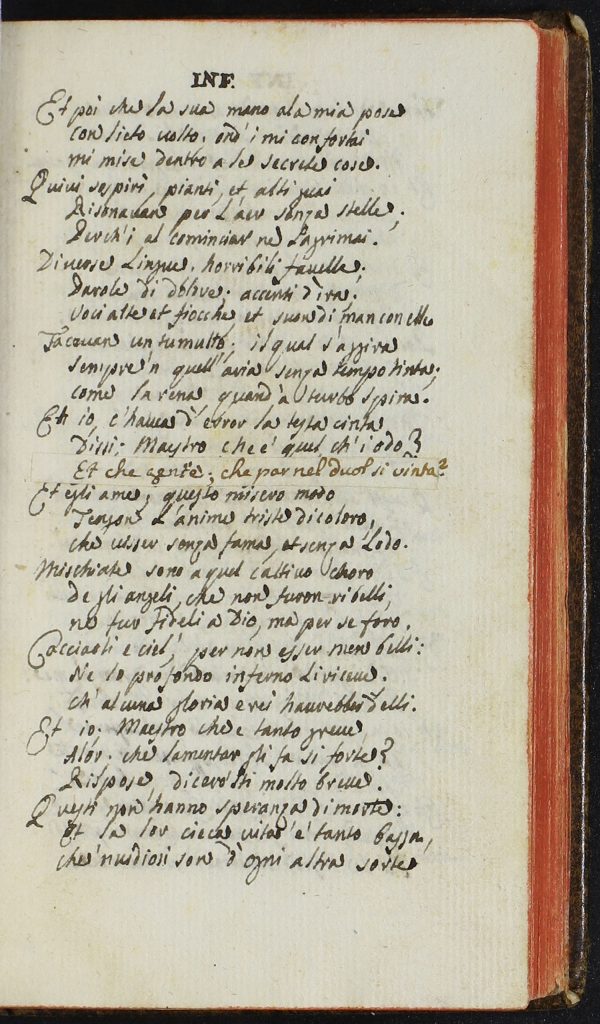 INF.
Et poi che la sua mano a la mia pose
Con lieto uolto, ond' i mi confortai
mi mise dentro a le secrete cose.
Quiui sospiri, pianti, et alti guai
Risonauan per l'aer senza stelle;
Perch'i al cominciar ne lagrimai.
Diuerse lingue, horribili fauelle,
Parole di dolore, accenti d'ira,
Voci alte et fioche et suon di man con elle
Faceuan un tumulto; il qual s'aggira
Sempre 'n quell' aria senza tempo tinta;
come la rena quand' à turbo spira.
Et io, c'hauea d'error la testa cinta
Dissi; Maestro che è quel ch' i odo?
Et che gente; che par nel duol si uinta?
Et egli a me; questo misero modo
Tengon l'anime triste di coloro,
che uisser senza fama, et senza lodo.
Mischiate sono a quel cattiuo choro
De gli angeli, che non furon ribelli,
ne fur fideli a Dio, ma per se foro.
Cacciarli e ciel, per non esser men belli:
Ne lo profondo inferno li riceue.
ch' alcuna gloria e rei haurebber d'elli.
Et io; Maestro che e tanto greue
A lor, che lamentar gli fa si forte?
Rispose, dicerolti molto breue.
Questi non hanno speranza di morte:
Et la lor cieca uita è tanto bassa,
che 'nuidiosi son d'ogni altra sorte